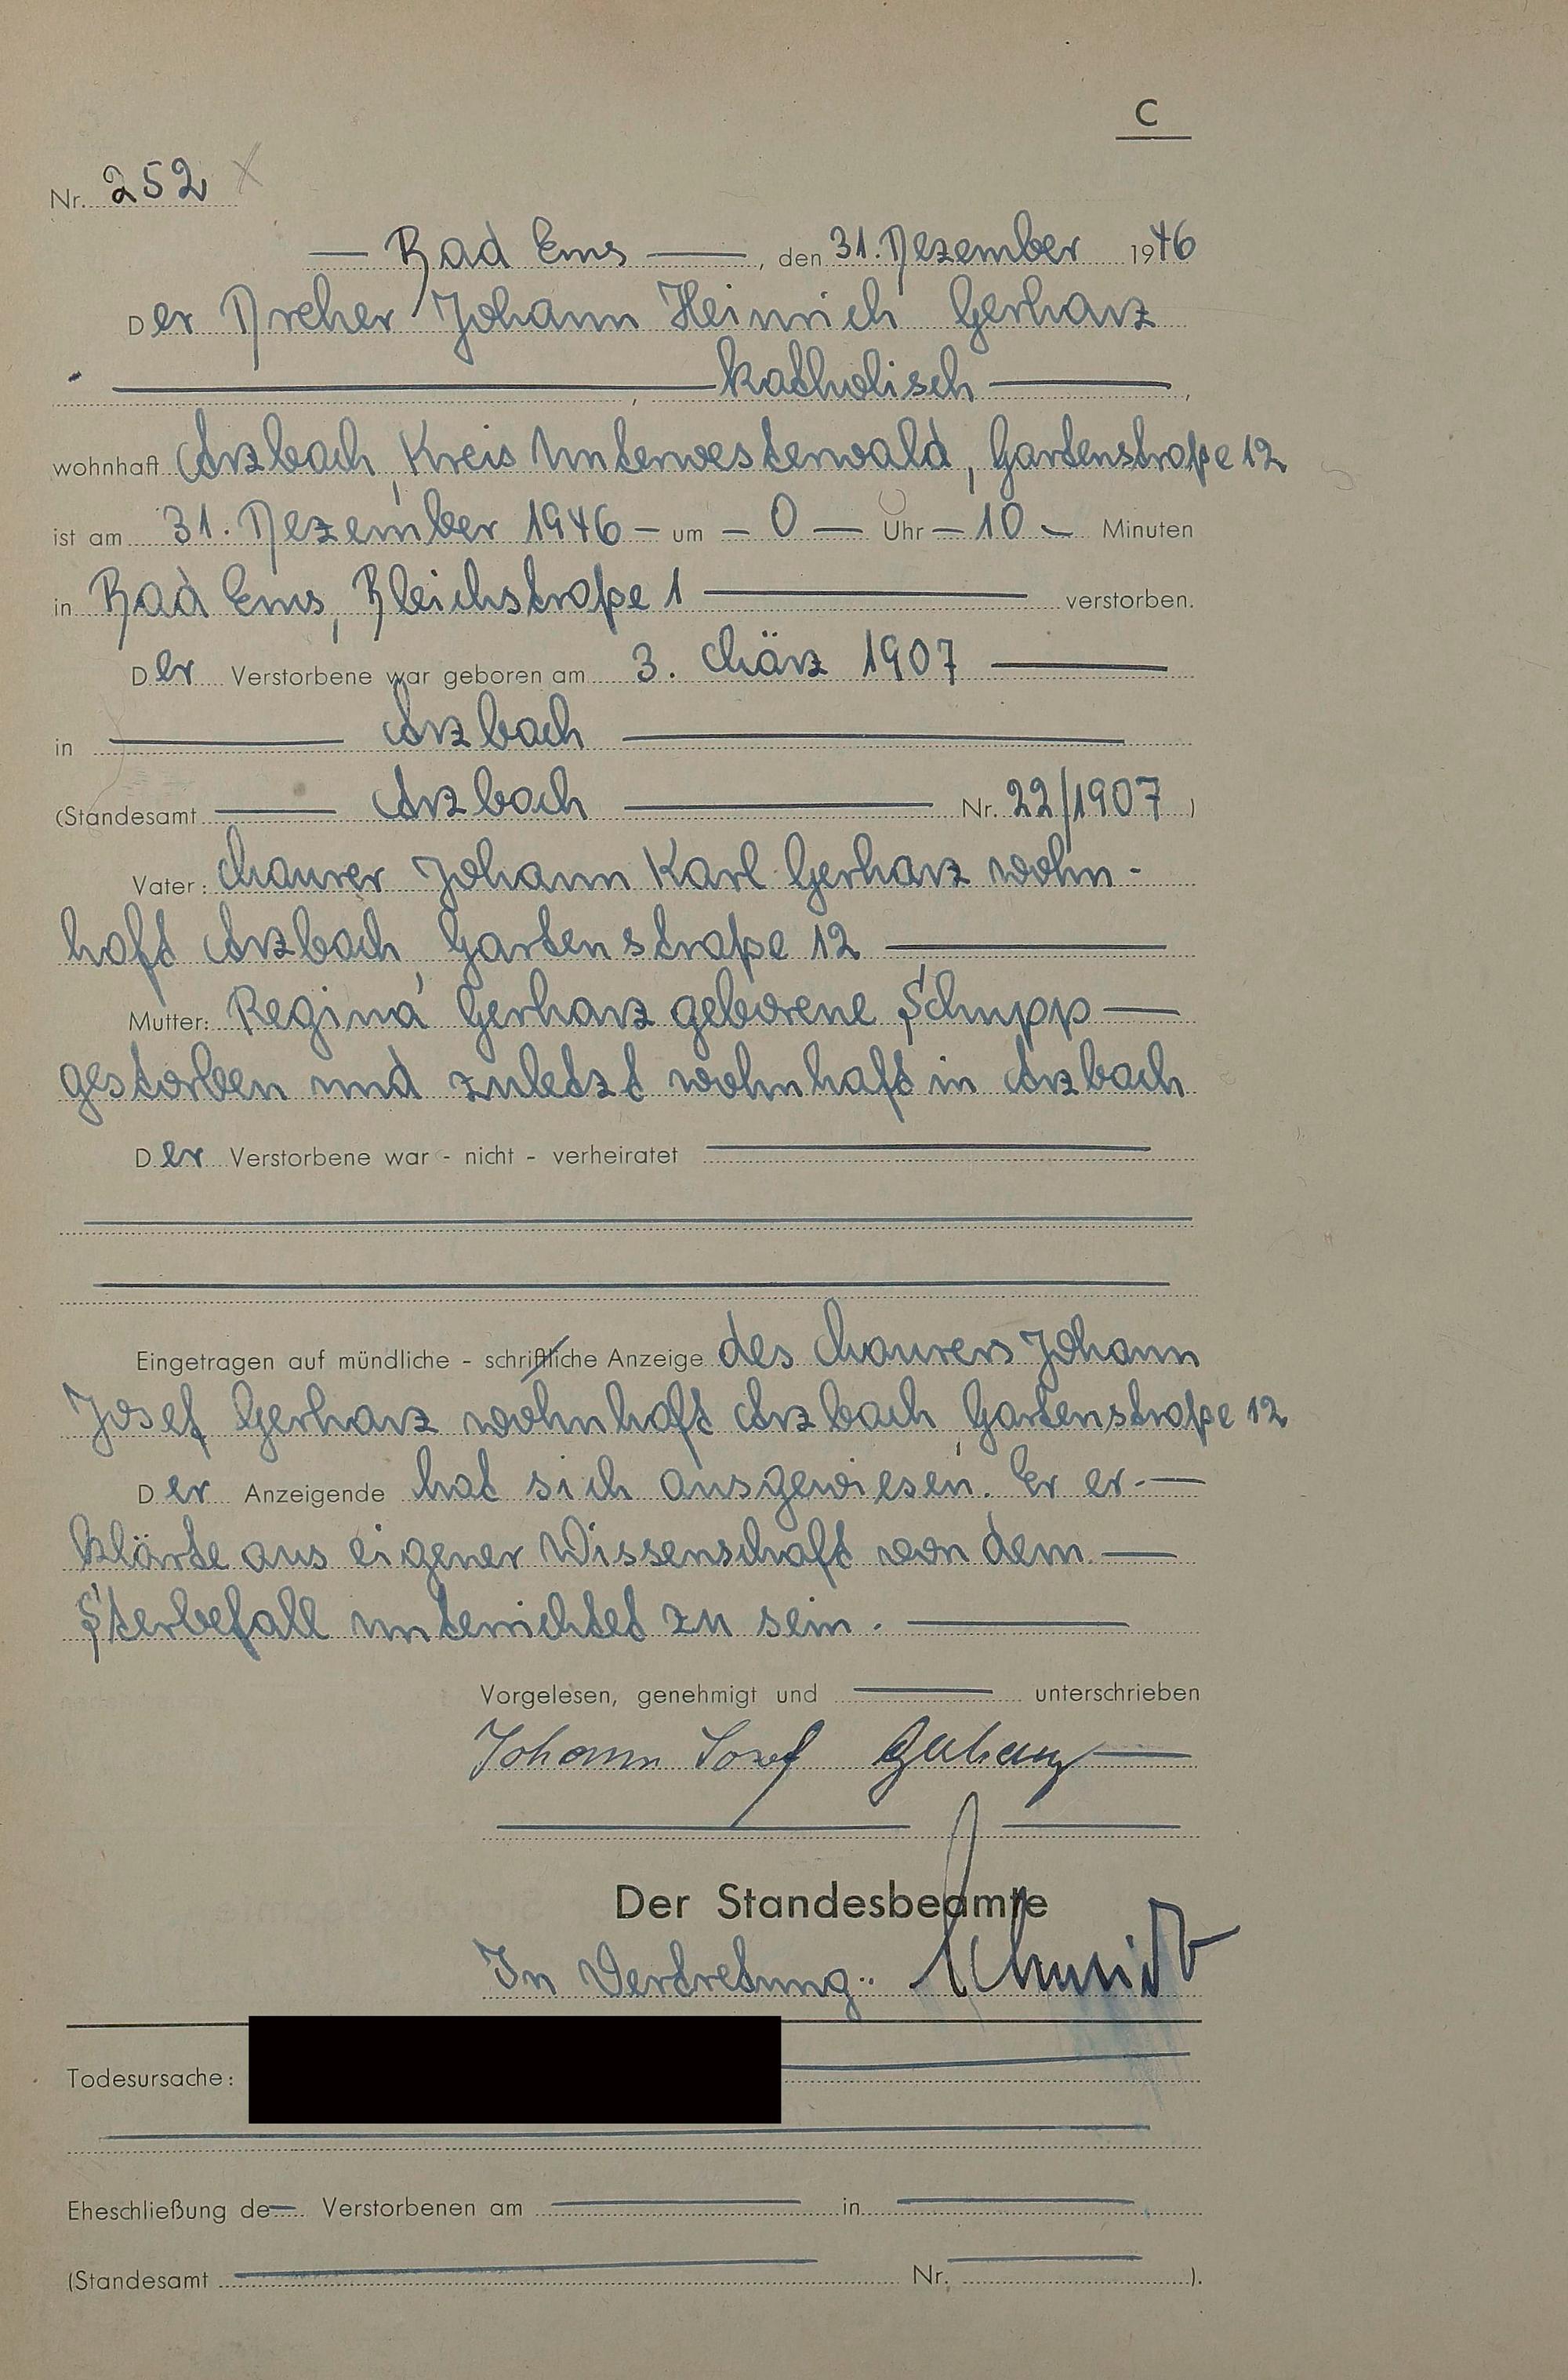 C
Nr. 252
Bad Ems, den 31. Dezember 1946
Der Dreher Johann Heinrich Gerharz
katholisch,
wohnhaft Arzbach, Kreis Unterwesterwald, Gartenstraße 12
ist am 31. Dezember 1946 - um - 0 - Uhr - 10 - Minuten
in Bad Ems, Bleichstraße 1 verstorben.
Der Verstorbene war geboren am 3. März 1907
in Arzbach
(Standesamt Arzbach Nr. 22/1907)
Vater: Maurer Johann Karl Gerharz wohn-
haft Arzbach, Gartenstraße 12
Mutter: Regina Gerharz geborene Schupp
gestorben und zuletzt wohnhaft in Arzbach
Der Verstorbene war - nicht - verheiratet
Eingetragen auf mündliche - schriftliche Anzeige des Maurers Johann
Josef Gerharz wohnhaft Arzbach, Gartenstraße 12
Der Anzeigende hat sich ausgewiesen. Er er-
klärte aus eigener Wissenschaft von dem
Sterbefall unterrichtet zu sein.
Vorgelesen, genehmigt und unterschrieben
Johann Josef Gerharz
Der Standesbeamte
In Vertretung: Schmidt
Todesursache:
Eheschließung de Verstorbenen am in
(Standesamt Nr. ).